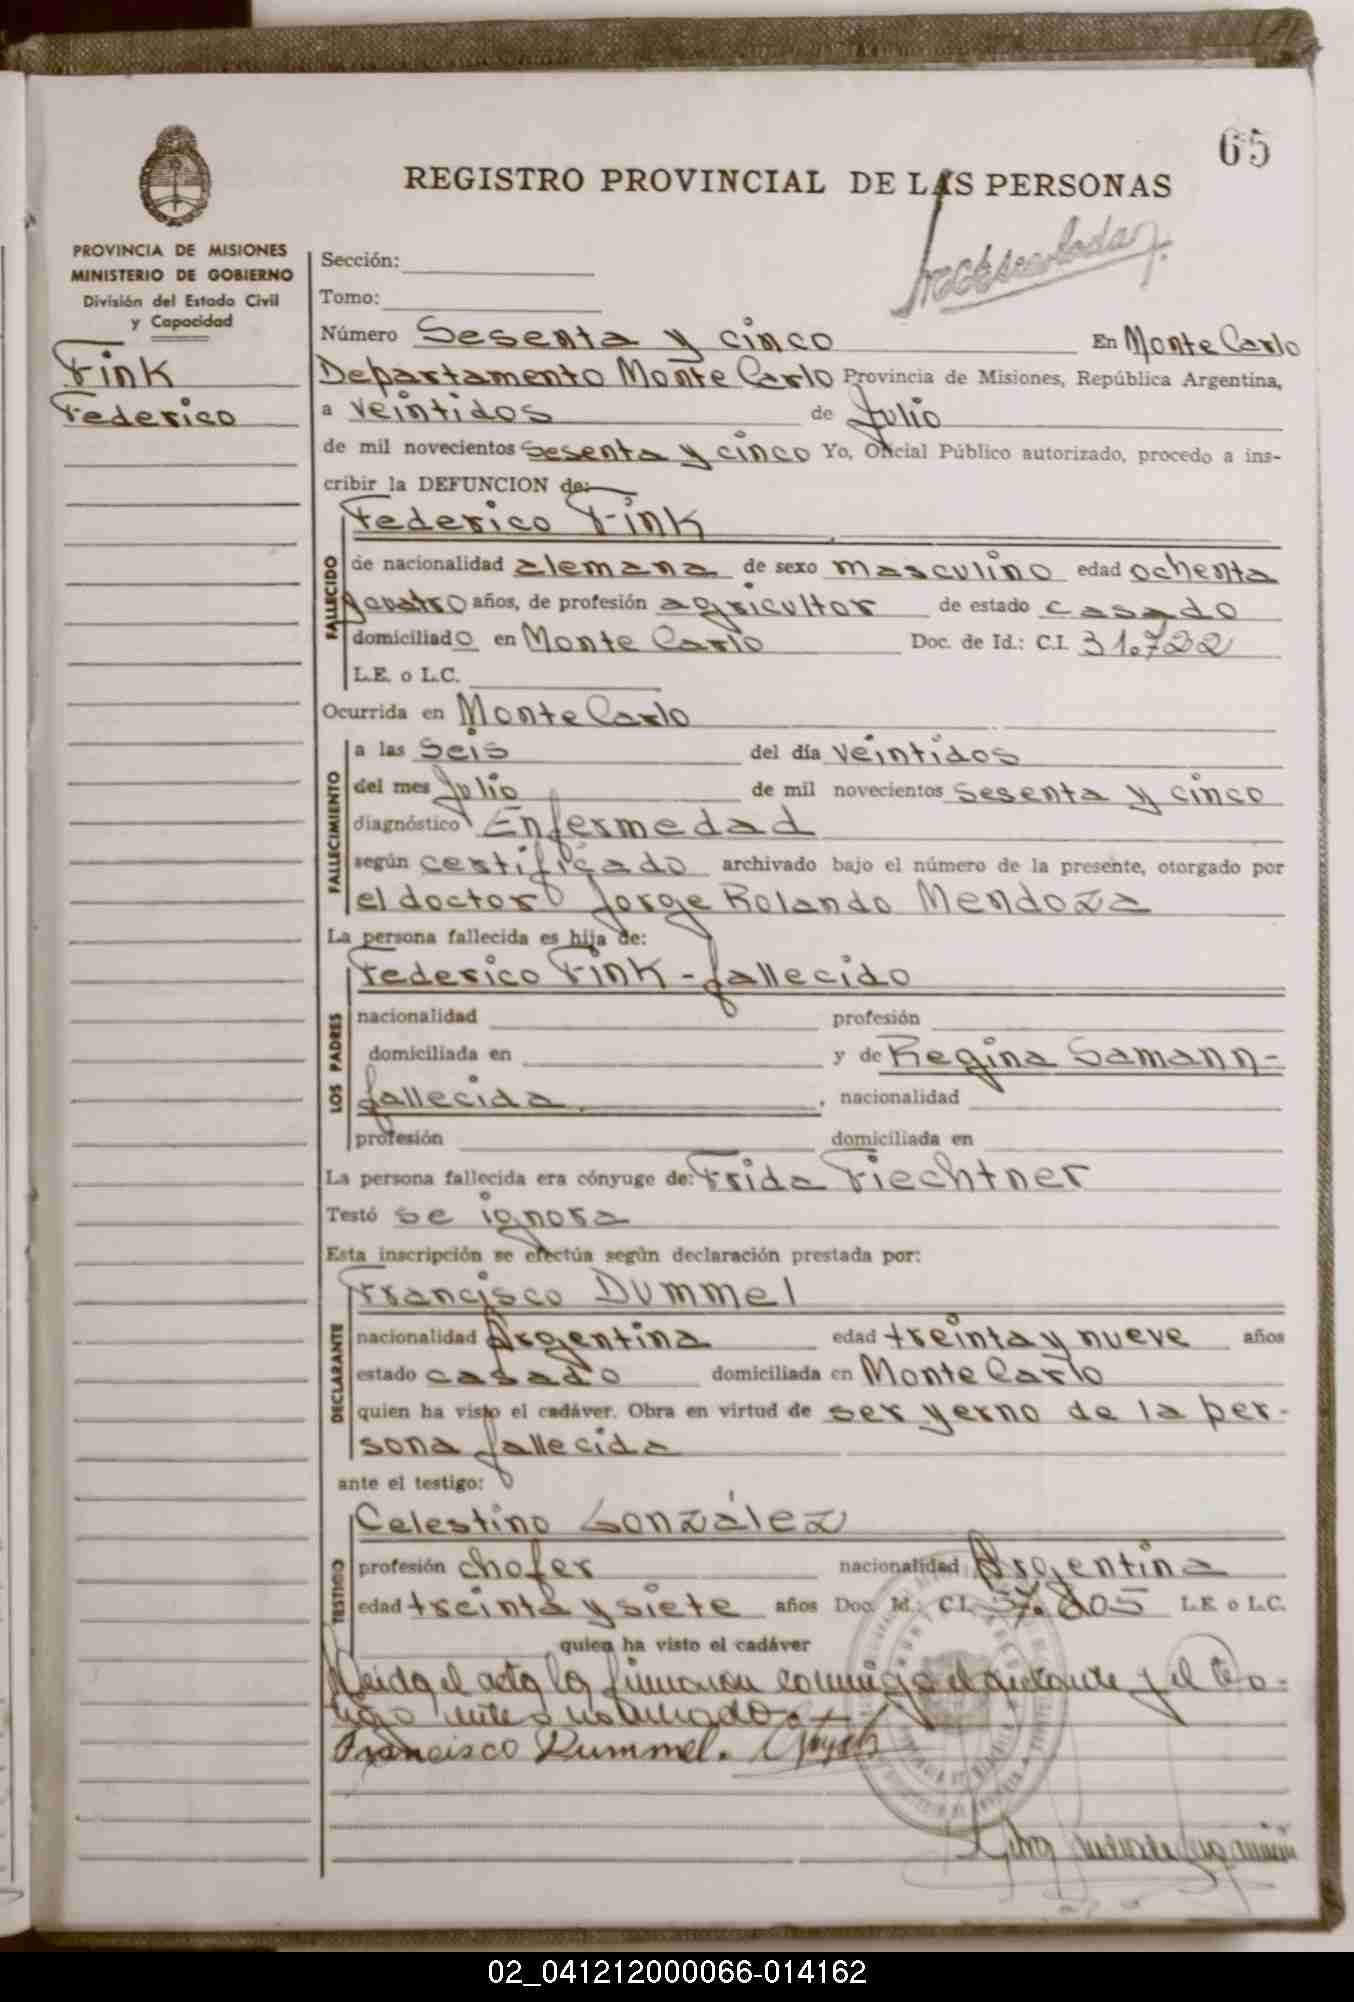 65
REGISTRO PROVINCIAL DE LAS PERSONAS
PROVINCIA DE MISIONES
MINISTERIO DE GOBIERNO
División del Estado Civil
y Capacidad
Fink
Federico
Sección:
Tomo:
Número Sesenta y cinco En Monte Carlo
Departamento Monte Carlo Provincia de Misiones, República Argentina,
a veintidos de Julio
de mil novecientos sesenta y cinco Yo, Oficial Público autorizado, procedo a ins-
cribir la DEFUNCION de:
Federico Fink
FALLECIDO
de nacionalidad alemana de sexo masculino edad ochenta
y cuatro años, de profesión agricultor de estado casado
domiciliado en Monte Carlo Doc. de Id.: C.I. 31.722
L.E. o L.C.
Ocurrida en Monte Carlo
FALLECIMIENTO
a las seis del día veintidos
del mes Julio de mil novecientos sesenta y cinco
diagnóstico Enfermedad
según certificado archivado bajo el número de la presente, otorgado por
el doctor Jorge Rolando Mendoza
La persona fallecida es hija de:
Federico Fink - fallecido
LOS PADRES
nacionalidad profesión
domiciliada en y de Regina Samann-
fallecida, nacionalidad
profesión domiciliada en
La persona fallecida era cónyuge de: Frida Fiechtner
Testó se ignora
Esta inscripción se efectúa según declaración prestada por:
Francisco Dummel
DECLARANTE
nacionalidad Argentina edad treinta y nueve años
estado casado domiciliada en Monte Carlo
quien ha visto el cadáver. Obra en virtud de ser yerno de la per-
sona fallecida
ante el testigo:
Celestino González
TESTIGO
profesión chofer nacionalidad Argentina
edad treinta y siete años Doc. Id.: C.I. 57.805 L.E. o L.C.
quien ha visto el cadáver
Leida el acta la firmaron conmigo el declarante y el tes-
tigo antes nombrado.
Francisco Dummel.
02_041212000066-014162